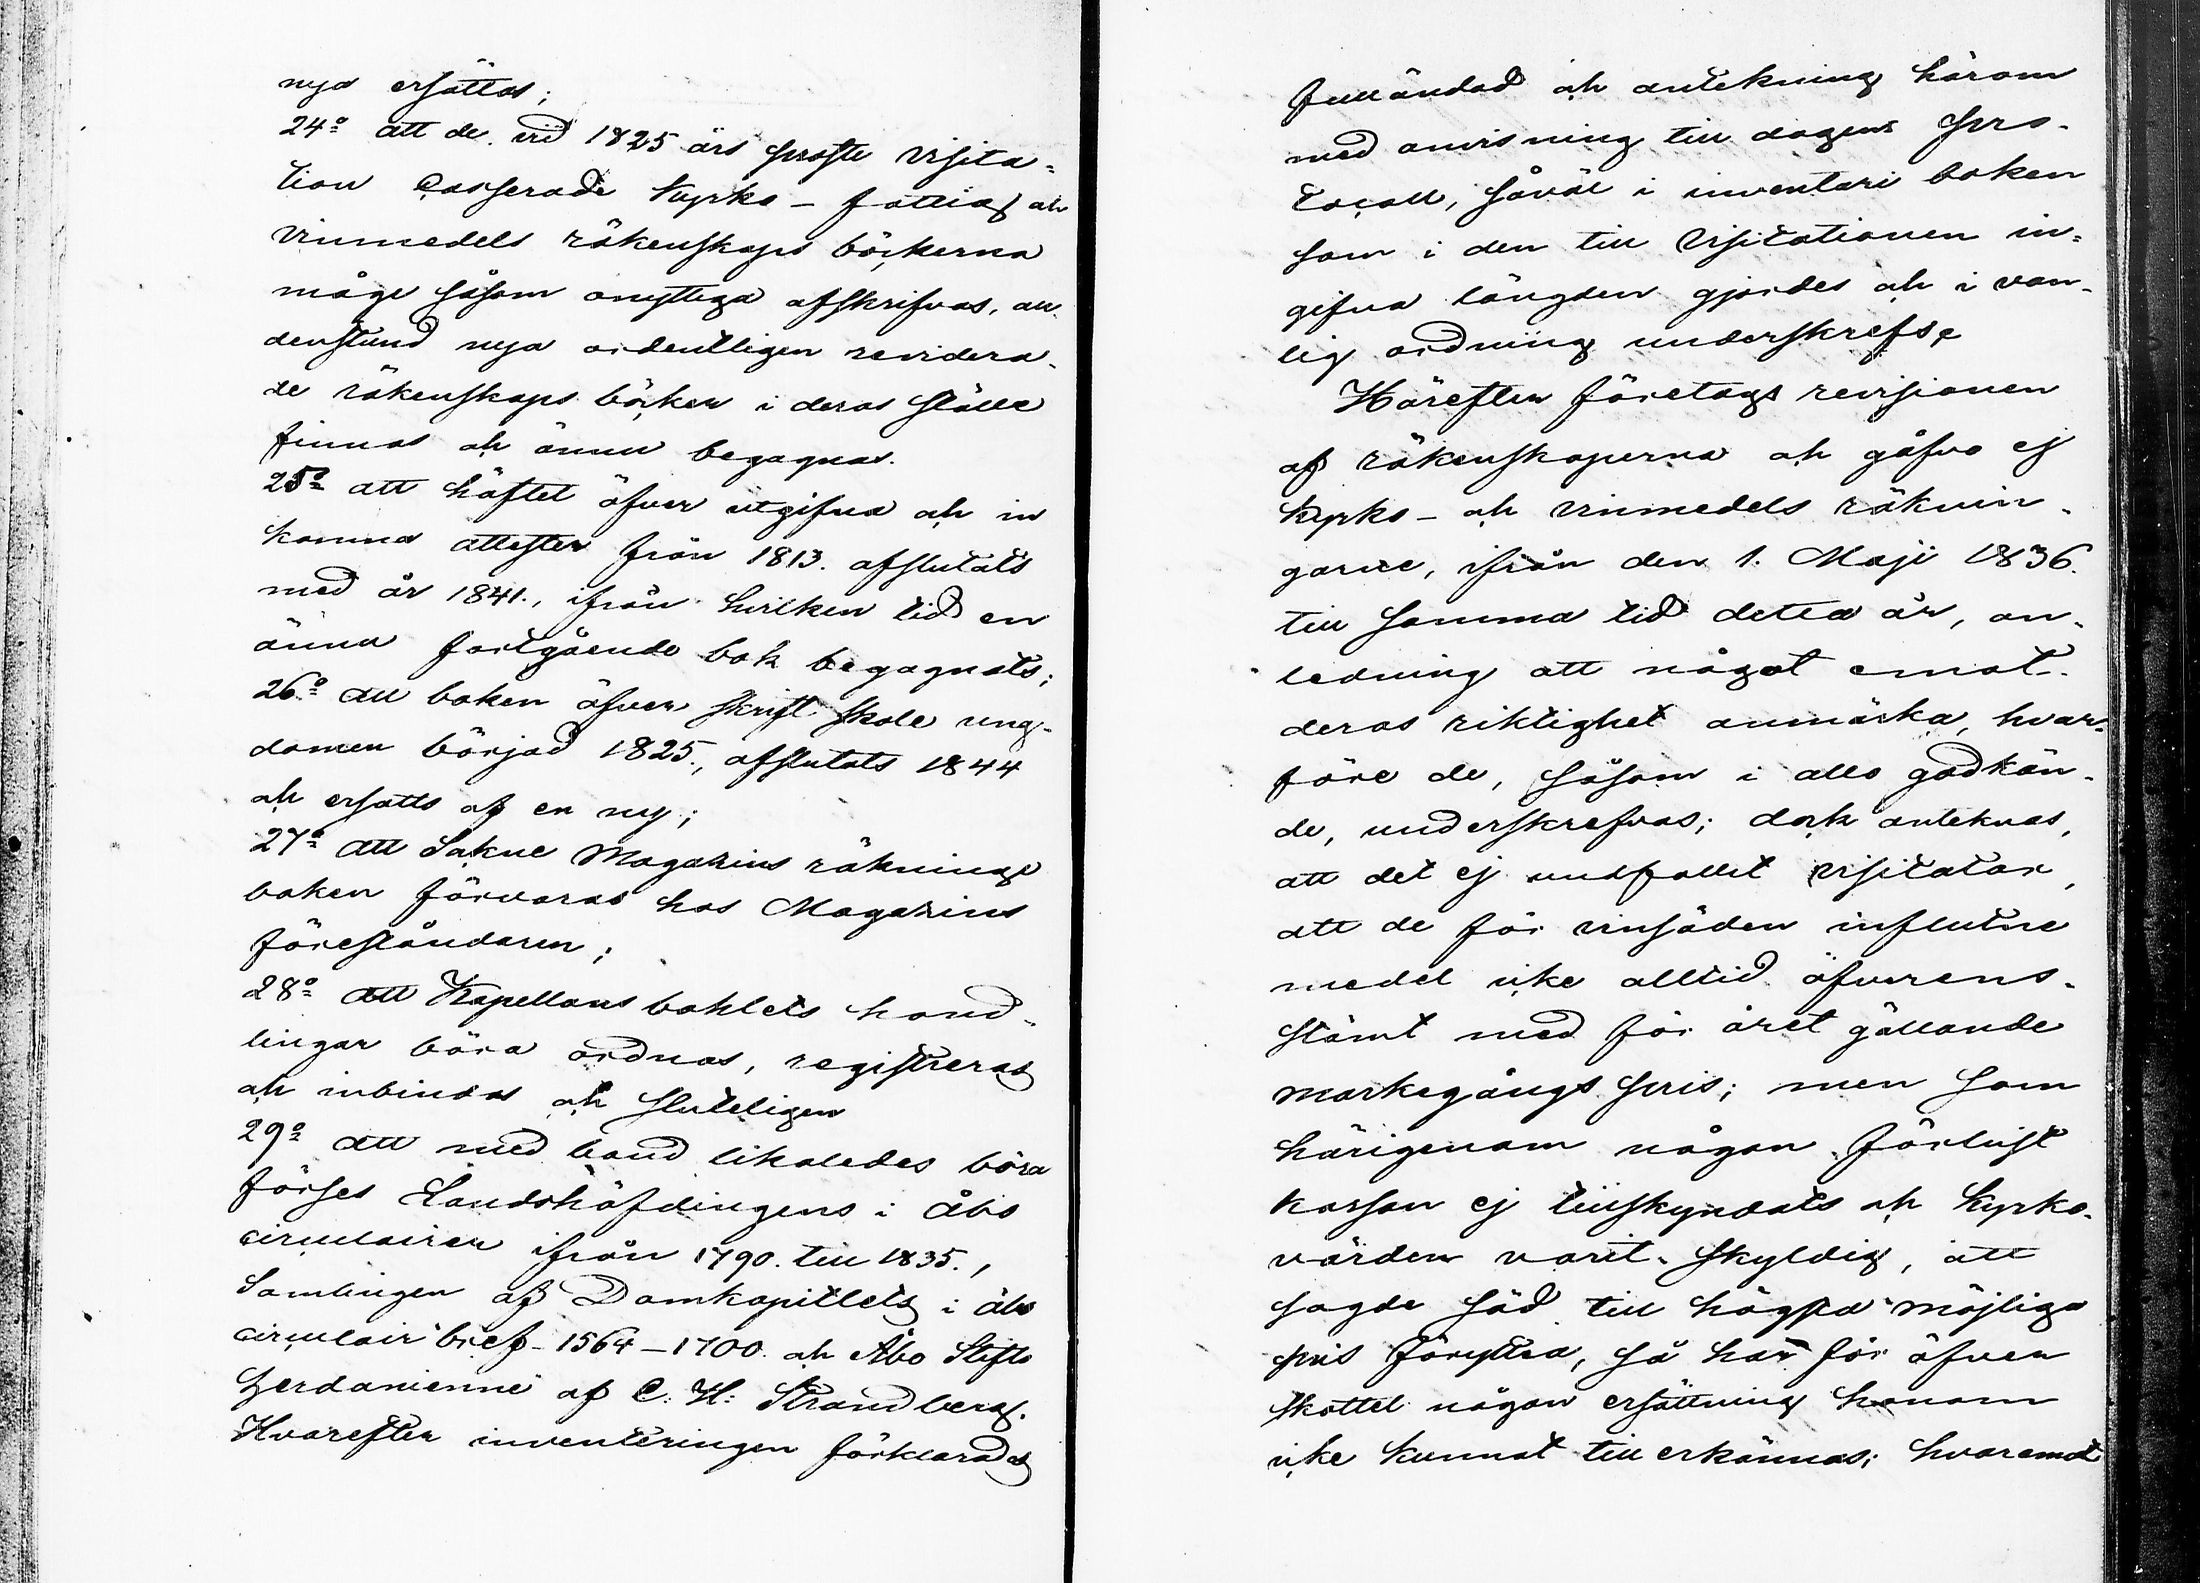 nya ersättas;
24º att de vid 1825 års proste visita-
tion Casserade Kyrko- fattig och
vinmedels räkenskaps böckerna
måge såsom onyttiga afskrifvas, all
denstund nya ordentligen revidera-
de räkenskaps böcker i deras ställe
finnas och ännu begagnas.
25º att häftet öfver utgifna och in
komna attester från 1813. afslutats
med år 1841., ifrån hvilken tid en
ännu fortgående bok begagnats;
26º att boken öfver skrift skole ung-
domen börjad 1825., afslutats 1844
och ersatts af en ny;
27º att Sokne Magazins räknings
boken förvaras hos Magazins
föreståndaren;
28º att Kapellans bohlets hand-
lingar böra ordnas, registreras
och inbindas och sluteligen
29º att med band likaledes böra
förses Landshöfdingens i Åbo
circulairer ifrån 1790. till 1835.,
Samlingen af Domkapitlets i Åbo
circulair bref- 1564-1700. och Åbo Stifts
herdaminne af C. H: Strandberg.
Hvarefter inventeringen förklarades
fulländad och antekning härom
med anvisning till dagens pro-
tocoll, såväl i inventari boken
som i den till visitationen in-
gifna längden gjordes och i van-
lig ordning underskrefs.
Härefter företogs revisionen
af räkenskaperna och gåfvo ej
kyrko- och vinmedels räknin-
garne, ifrån den 1. Maji 1836.
till samma tid detta år, an-
ledning att något emot
deras riktighet anmärka, hvar-
före de, såsom i allo godkän-
de, underskrefvos; dock anteknas,
att det ej undfallit visitator,
att de för vinsäden influtne
medel icke alltid öfverens-
stämt med för året gällande
markegångs pris; men som
härigenom någon förlust
kassan ej tillskyndats och Kyrko-
värden varit skyldig, att
sagde säd till högsta möjliga
pris föryttra, så har för öfver
skottet någon ersättning honom
icke kunnat till erkännas; hvaremot